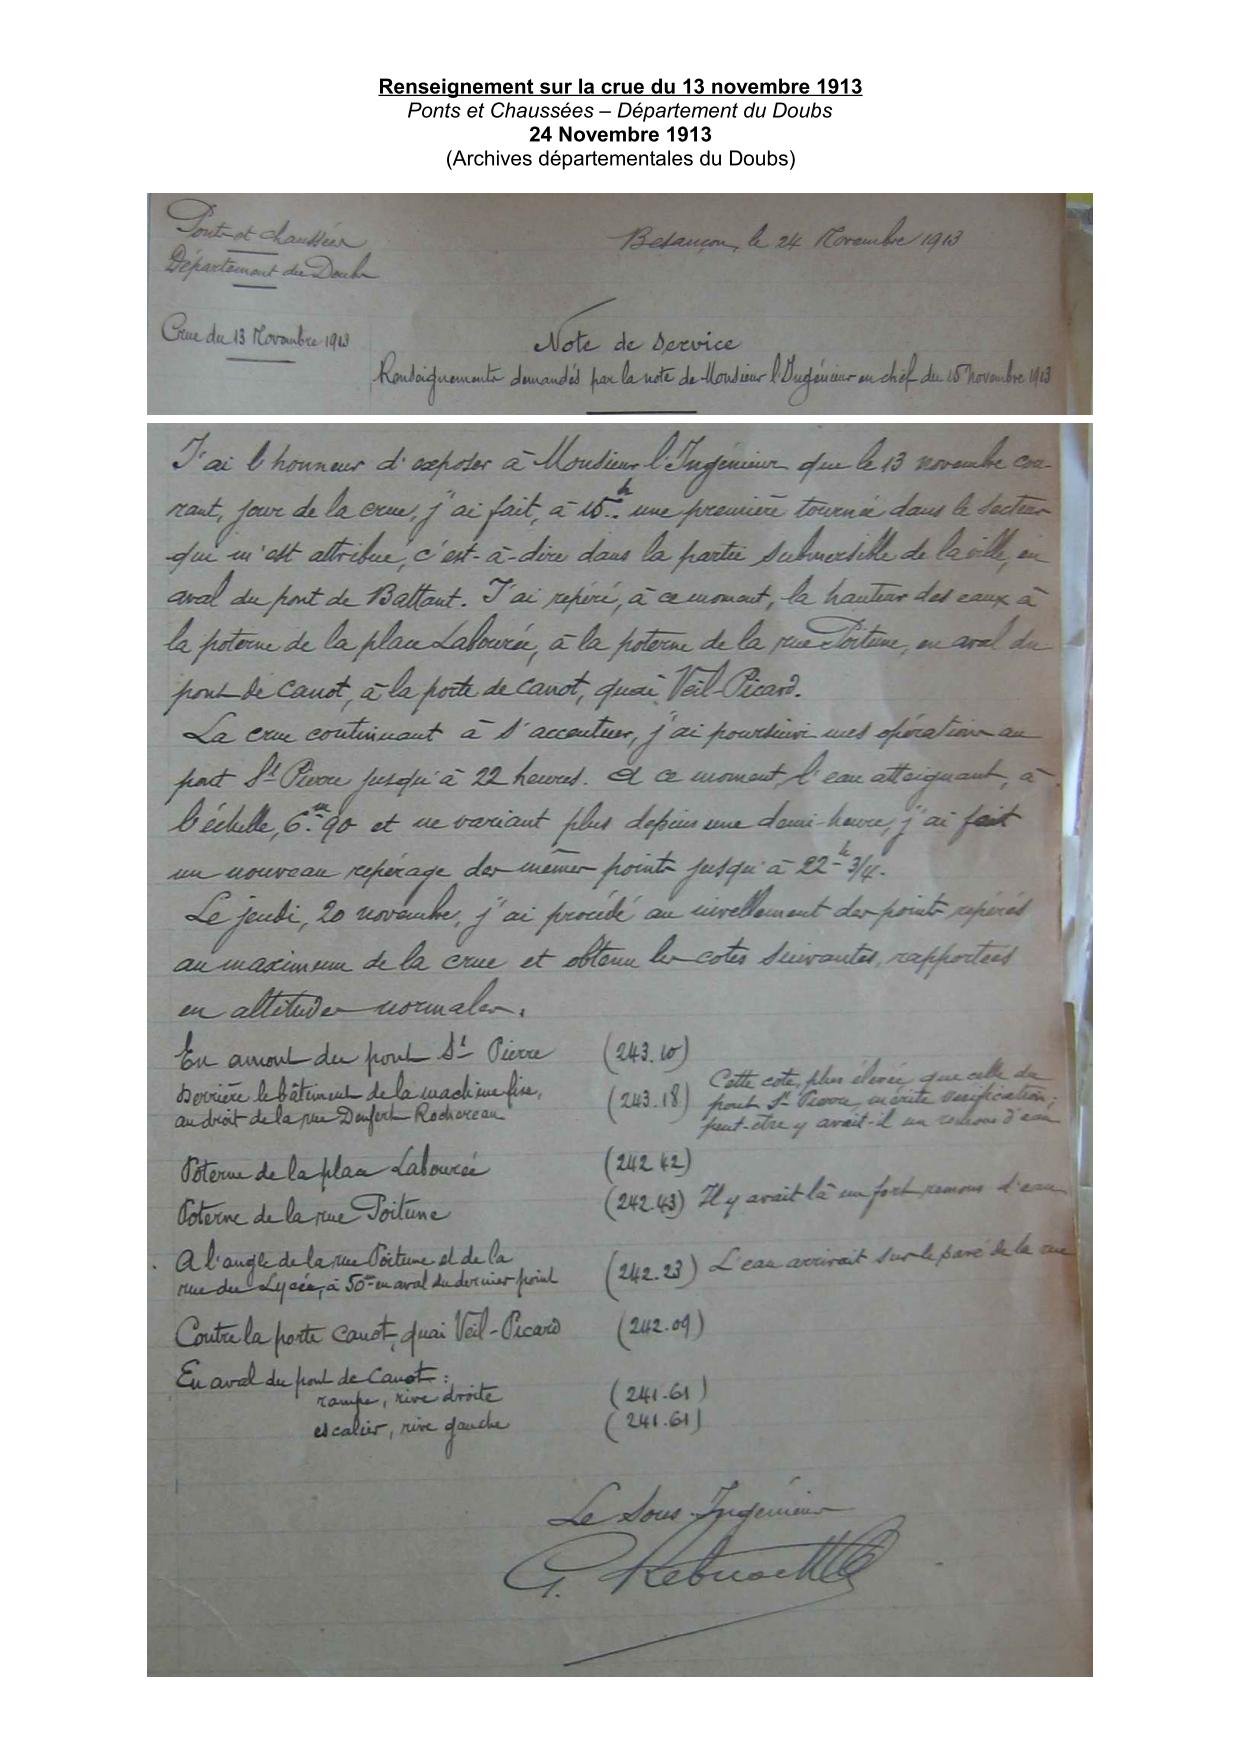 Renseignement sur la crue du 13 novembre 1913
Ponts et Chaussées – Département du Doubs
24 Novembre 1913
(Archives départementales du Doubs)
Ponts et chaussées
Département du Doubs
Besançon, le 24 Novembre 1913
Crue du 13 Novembre 1913
Note de Service
Renseignements demandés par la note de Monsieur l'Ingénieur en chef du 15 Novembre 1913
J'ai l'honneur d'exposer à Monsieur l'Ingénieur que le 13 novembre cou-
rant, jour de la crue, j'ai fait, à 15h. une première tournée dans le secteur
qui m'est attribué, c'est-à-dire dans la partie submersible de la ville, en
aval du pont de Battant. J'ai repéré, à ce moment, la hauteur des eaux à
la poterne de la place Labourée, à la poterne de la rue Poitune, en aval du
pont de Canot, à la porte de Canot, quai Veil-Picard.
La crue continuant à s'accentuer, j'ai poursuivi mes opérations au
port St Pierre jusqu'à 22 heures. A ce moment, l'eau atteignant, à
l'échelle, 6m.90 et ne variant plus depuis une demi-heure, j'ai fait
un nouveau repérage des mêmes points jusqu'à 22h 3/4.
Le jeudi, 20 novembre, j'ai procédé au nivellement des points repérés
au maximum de la crue et obtenu les cotes suivantes, rapportées
en altitudes normales.
En amont du pont St Pierre (243.10)
Derrière le bâtiment de la machine fixe,
au droit de la rue Denfert Rochereau (243.18) Cette cote, plus élevée que celle du
pont St Pierre, mérite vérification;
peut-être y avait-il un remous d'eau
Poterne de la place Labourée (242.42)
Poterne de la rue Poitune (242.43) Il y avait là un fort remous d'eau
A l'angle de la rue Poitune et de la
rue du Lycée, à 50m en aval du dernier point (242.23) L'eau arrivait sur le pavé de la rue
Contre la porte Canot, quai Veil-Picard (242.09)
En aval du pont de Canot :
rampe, rive droite (241.61)
escalier, rive gauche (241.61)
Le Sous-Ingénieur
G.